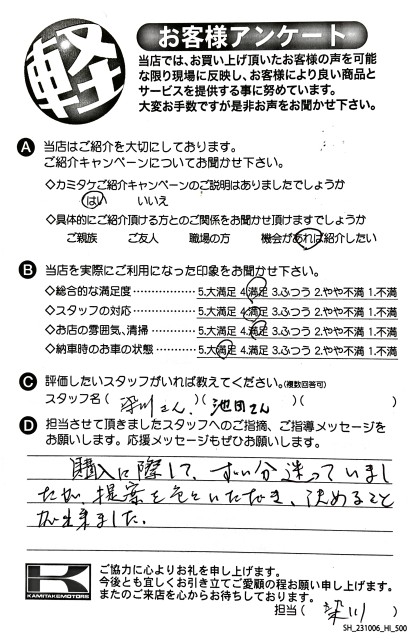 軽
お客様アンケート
当店では、お買い上げ頂いたお客様の声を可能
な限り現場に反映し、お客様により良い商品と
サービスを提供する事に努めています。
大変お手数ですが是非お声をお聞かせ下さい。
A 当店はご紹介を大切にしております。
ご紹介キャンペーンについてお聞かせ下さい。
◇カミタケご紹介キャンペーンのご説明はありましたでしょうか
はい いいえ
◇具体的にご紹介頂ける方とのご関係をお聞かせ頂けますでしょうか
ご親族 ご友人 職場の方 機会があれば紹介したい
B 当店を実際にご利用になった印象をお聞かせ下さい。
◇総合的な満足度 ・・・・・・・・・・・・ 5.大満足 4.満足 3.ふつう 2.やや不満 1.不満
◇スタッフの対応 ・・・・・・・・・・・・ 5.大満足 4.満足 3.ふつう 2.やや不満 1.不満
◇お店の雰囲気、清掃 ・・・・・・・ 5.大満足 4.満足 3.ふつう 2.やや不満 1.不満
◇納車時のお車の状態 ・・・・・・・ 5.大満足 4.満足 3.ふつう 2.やや不満 1.不満
C 評価したいスタッフがいれば教えてください。(複数回答可)
スタッフ名 ( 梁川さん )( 池田さん )( )
D 担当させて頂きましたスタッフへのご指摘、ご指導メッセージを
お願いします。応援メッセージもぜひお願いします。
購入に際して、ずい分迷っていまし
たが、提案を色々いただき、決めること
が出来ました。
K
KAMITAKEMOTORS
ご協力に心よりお礼を申し上げます。
今後とも宜しくお引き立てご愛顧の程お願い申し上げます。
またのご来店を心からお待ちしております。
担当 ( 梁川 )
SH_231006_HI_500